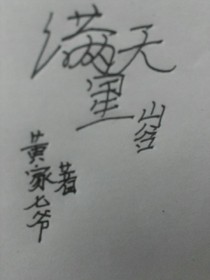 满天
星
山谷
黄家七爷
著